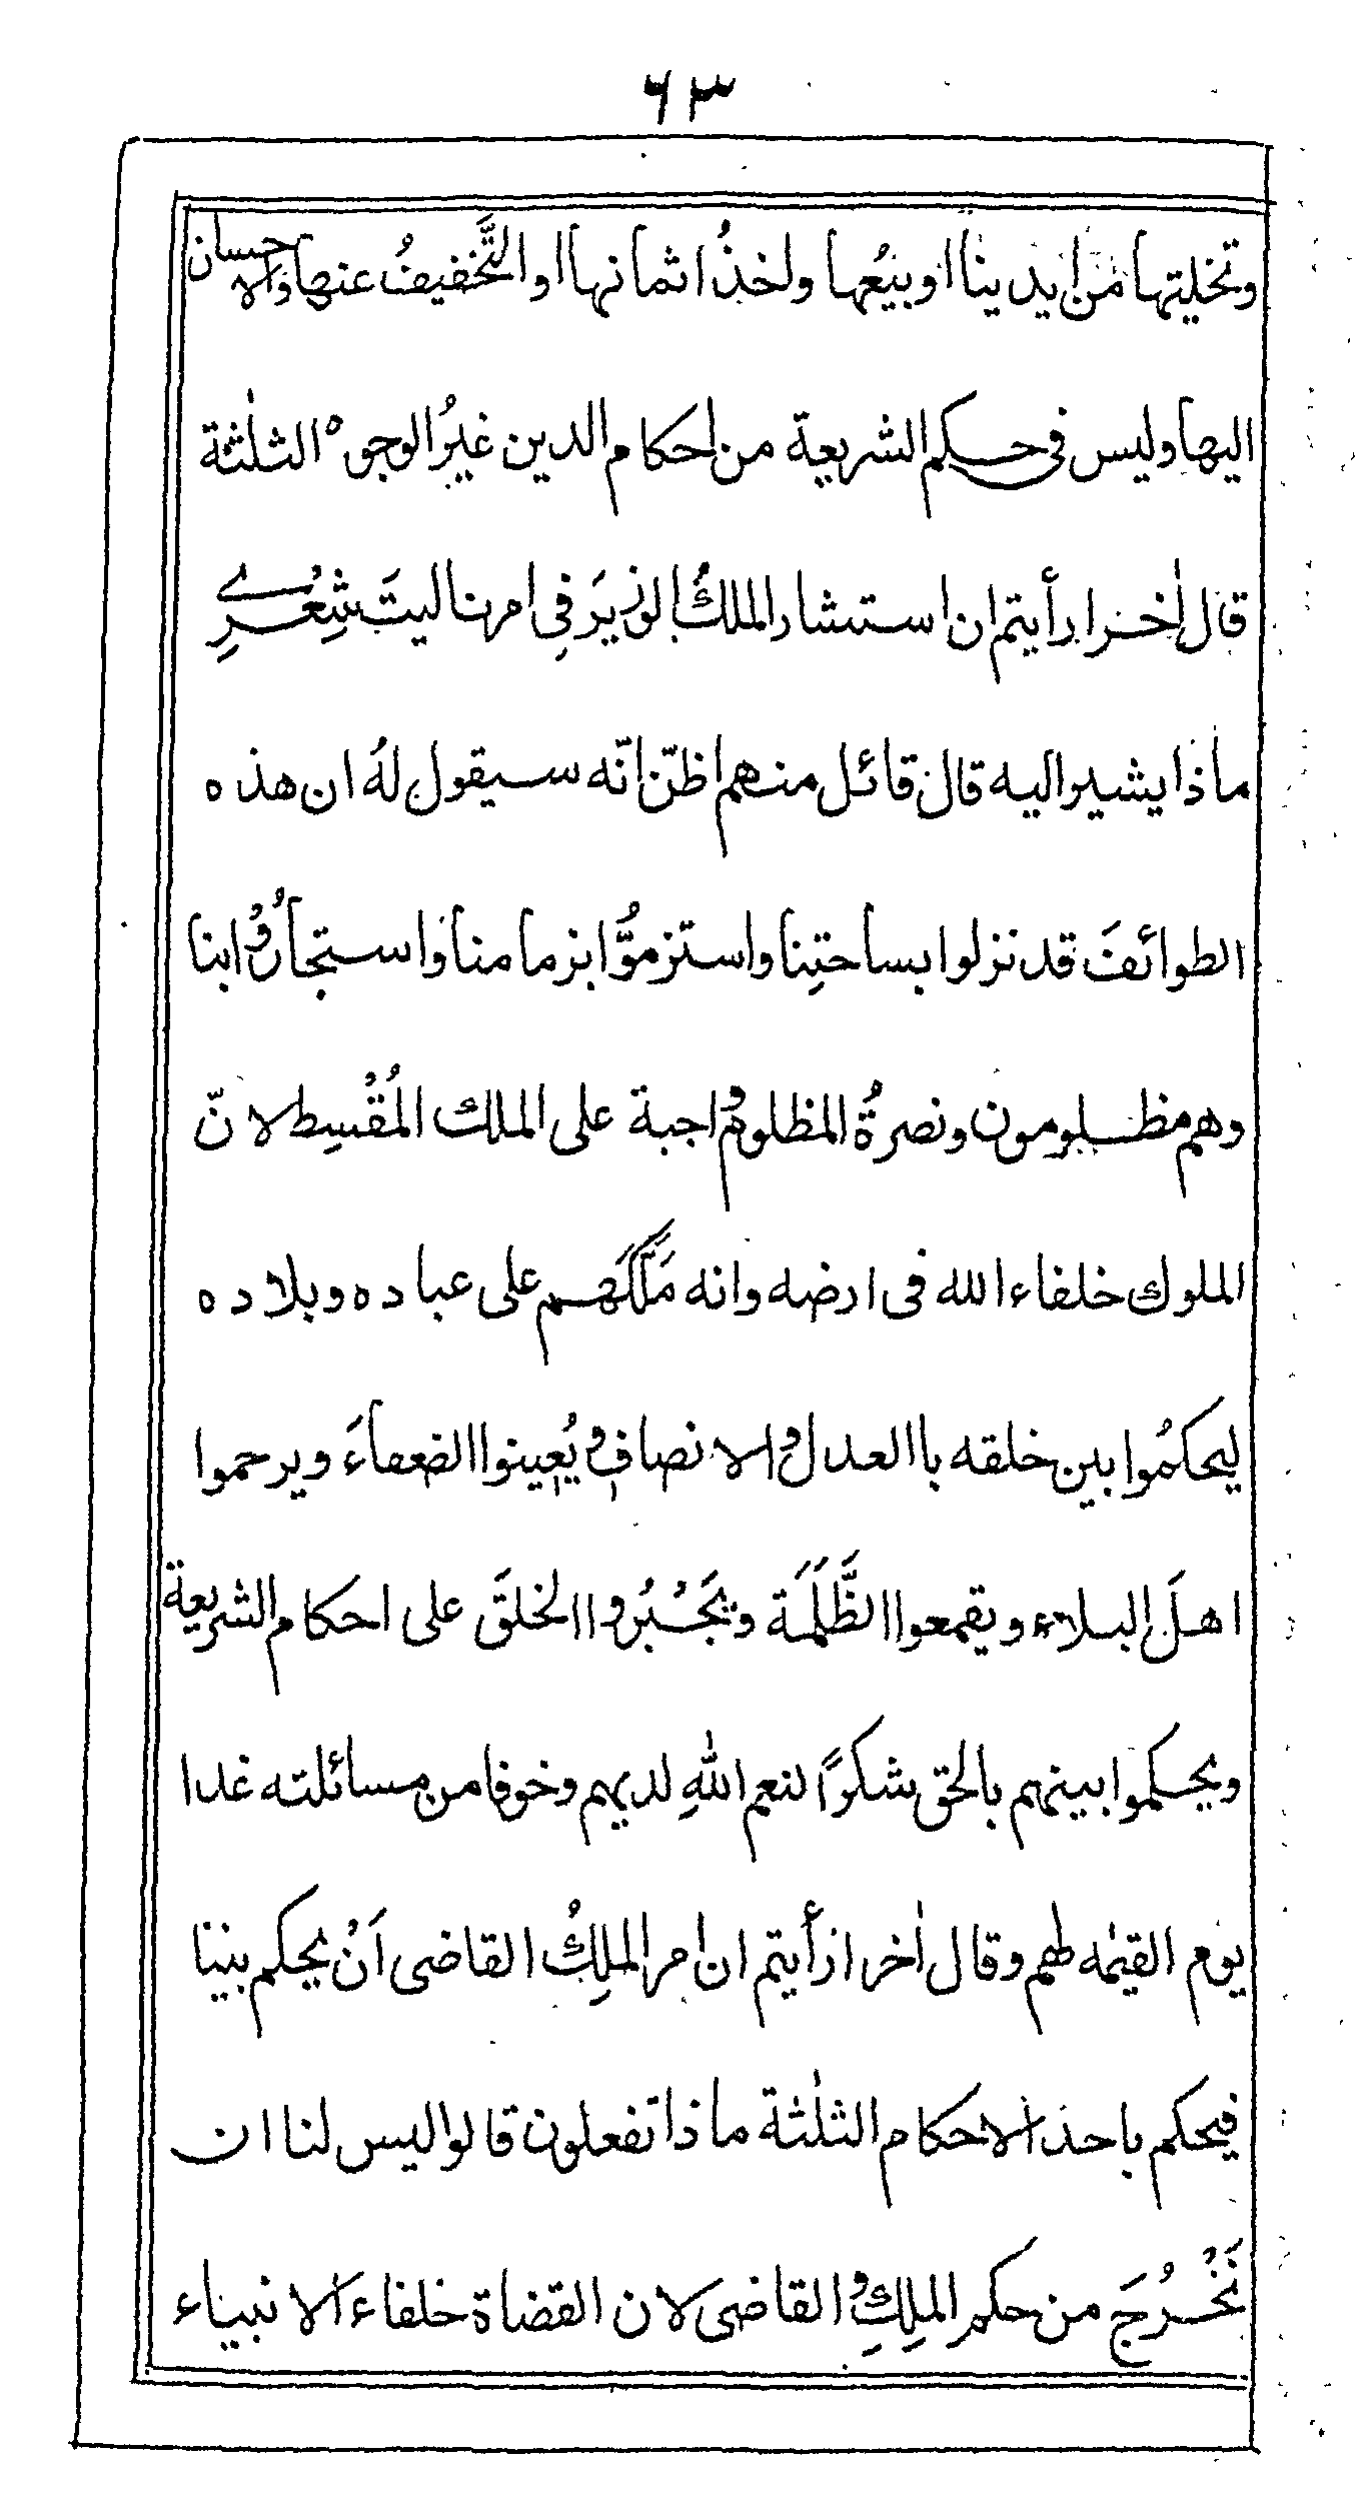 ٦٣
وتخليتها من ايدينا او بيعُها واخذُ اثمانها او التَّخفيفُ عنها والاحسان
اليها وليس فى حكم الشريعة من احكام الدين غيرُ الوجوه الثلٰثة
قال اٰخر ارأيتم ان استشار الملكُ الوزيرَ فِى امرنا ليتَ شِعُرِے
ماذا يشير اليه قال قائل منهم اظنّ انّه سيقول لهُ ان هذه
الطوائفَ قد نزلوا بساحتِنا واستزموُّا بزمامنا واستجارُوْا بنا
وهم مظلومون ونصرةُ المظلوم واجبة على الملك المُقْسِط لانّ
الملوك خلفاء الله فى ارضه وانه مَلَّكَهم على عباده وبلاده
ليحكمُوا بين خلقه با العدل والانصافِ ويُعِينوا الضعفاءَ ويرحموا
اهلَ البلاء ويقمعوا الظَّلَمَة ويَجْبُروا الخلقَ على احكام الشريعة
ويحكموا بينهم بالحق شكرًا لنعم اللهِ لديهم وخوفا من مسائلته غدا
يوم القيٰمه لهم وقال اٰخر ارأيتم ان امر الملِكُ القاضى اَنْ يحكم بيننا
فيحكم باحد الاحكام الثلٰثة ماذا تفعلون قالوا ليس لنا ان
نَخْرُجَ من حكم الملِكِ والقاضى لان القضاة خلفاء الانبياء